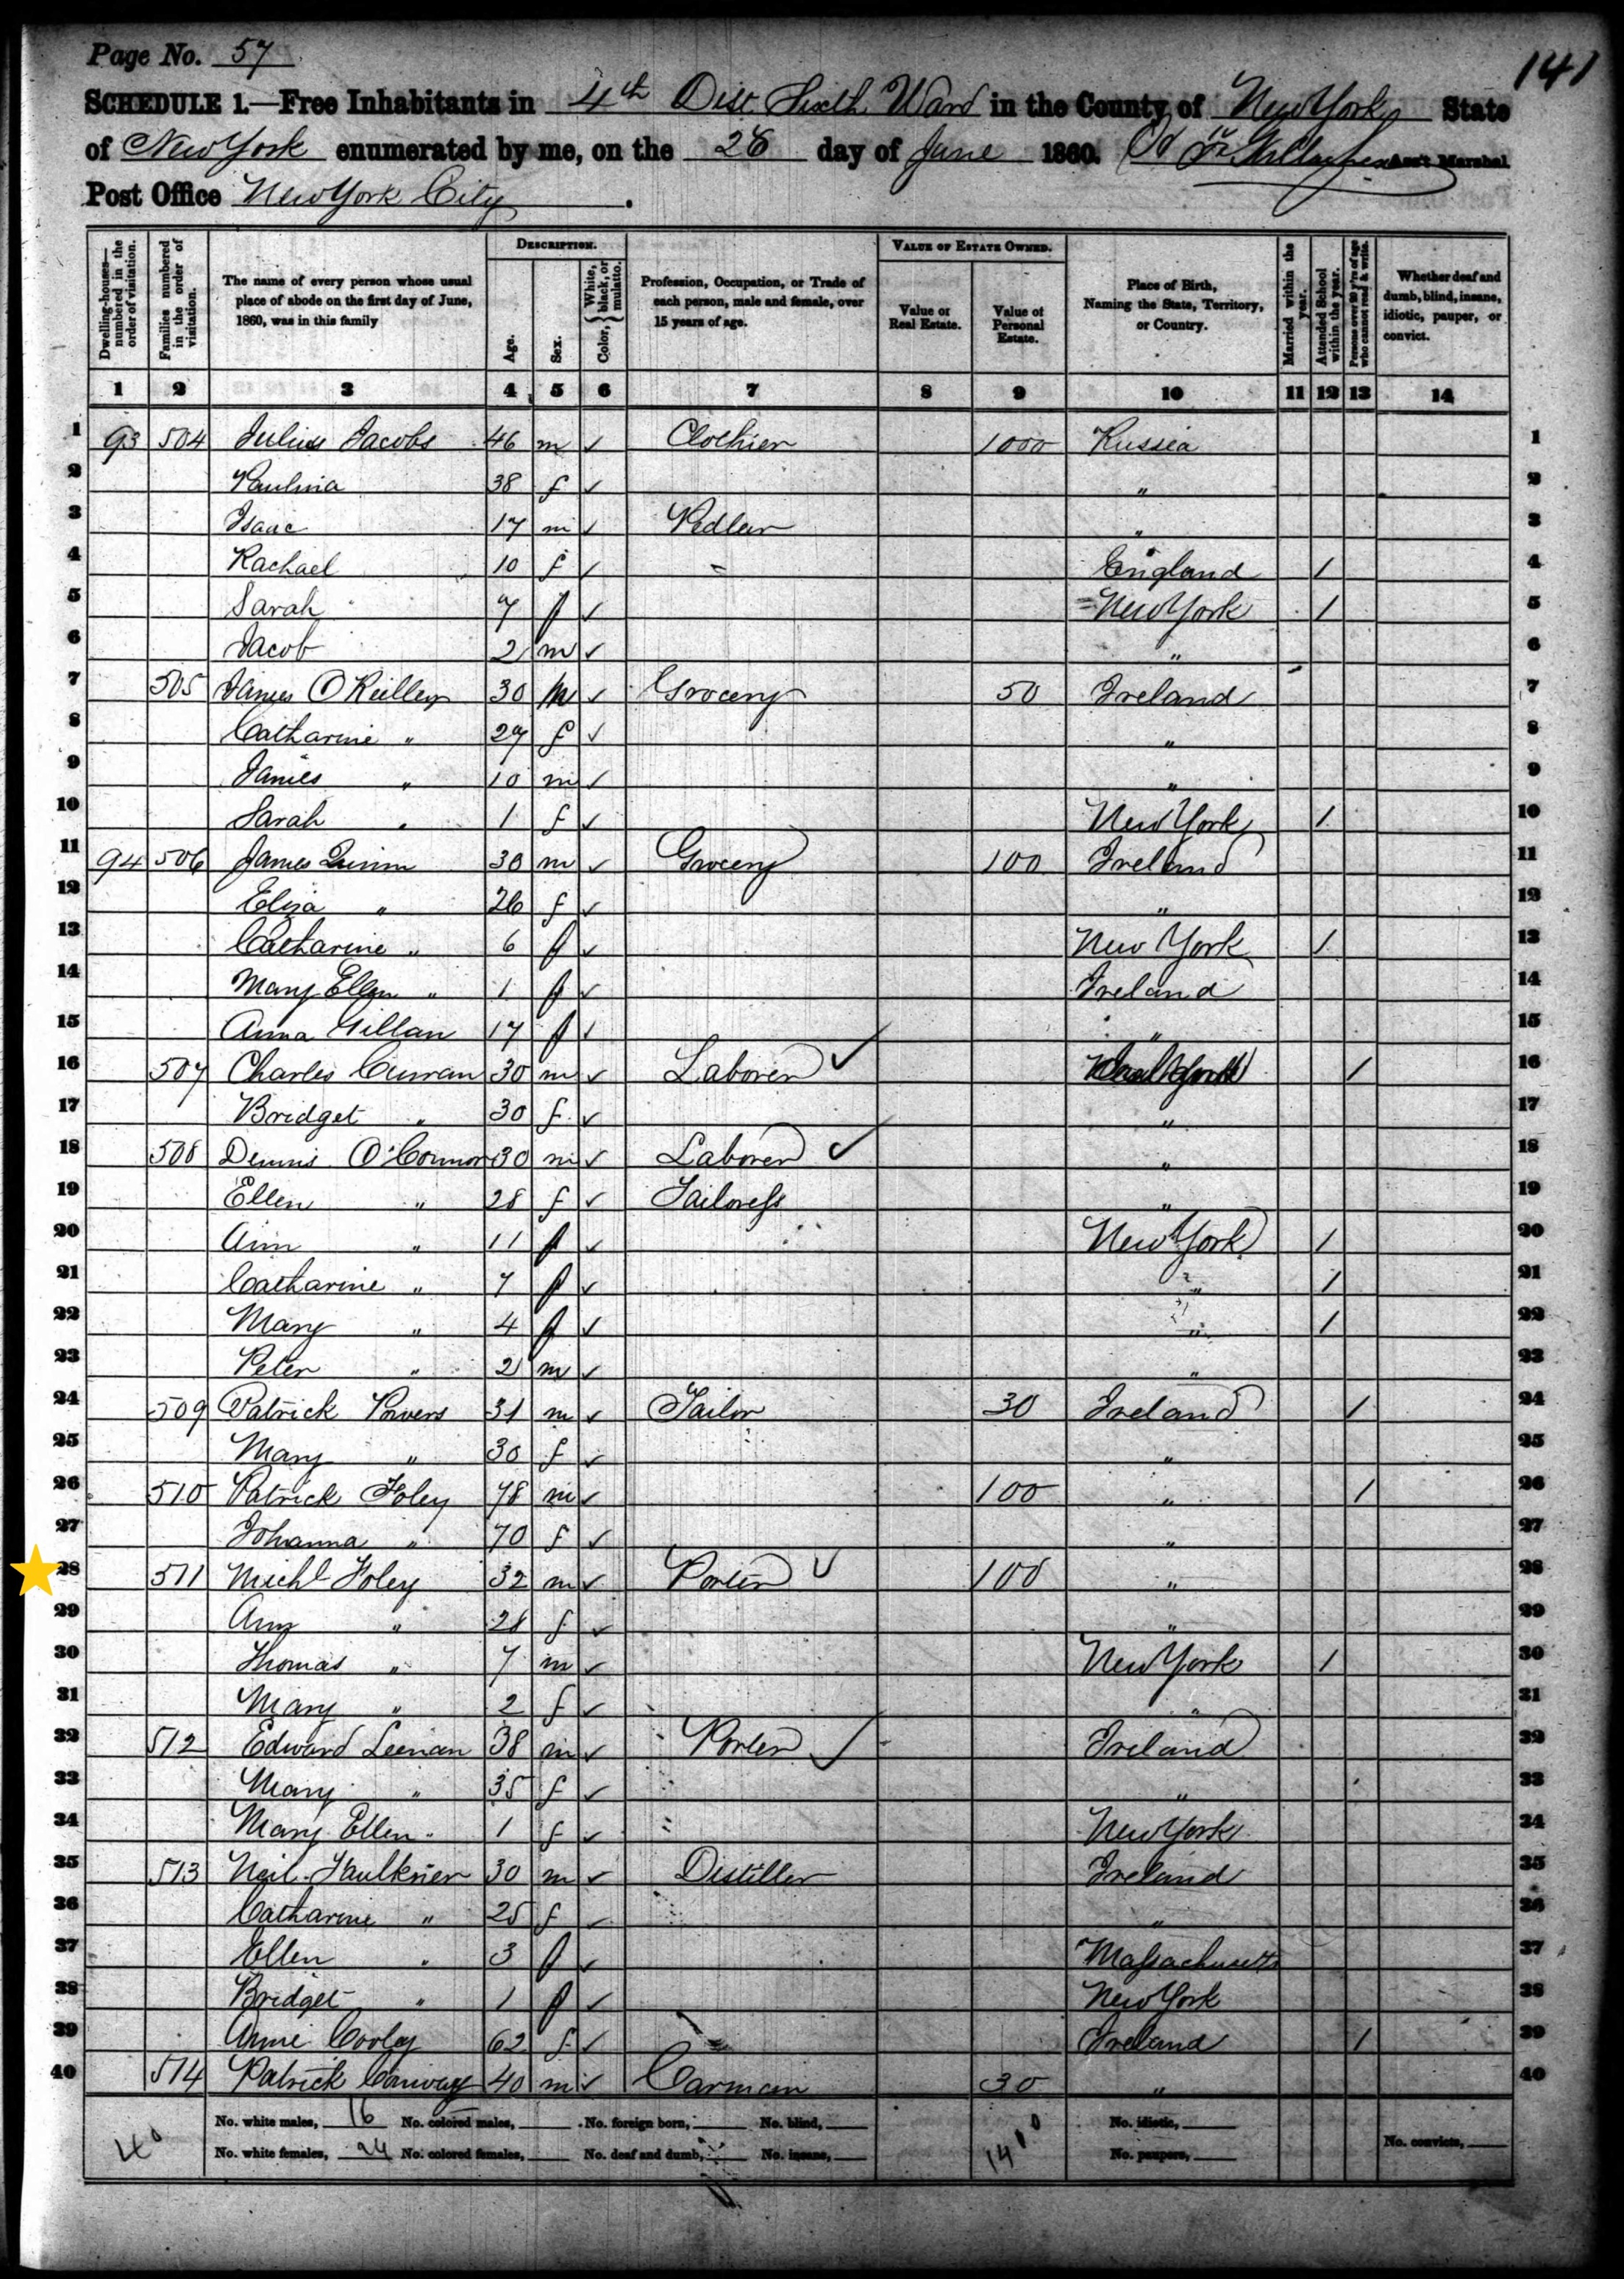 Page No. 57
141
SCHEDULE 1.—Free Inhabitants in 4th Dist Sixth Ward in the County of New York State
of New York enumerated by me, on the 26 day of June 1860. Ass't Marshal
Post Office New York City.
Dwelling-houses—numbered in the order of visitation. Families numbered in the order of visitation. The name of every person whose usual place of abode on the first day of June, 1860, was in this family DESCRIPTION. Age. Sex. Color, { White, black, or mulatto. Profession, Occupation, or Trade of each person, male and female, over 15 years of age. VALUE OF ESTATE OWNED. Value of Real Estate. Value of Personal Estate. Place of Birth, Naming the State, Territory, or Country. Married within the year. Attended School within the year. Persons over 20 y'rs of age who cannot read & write. Whether deaf and dumb, blind, insane, idiotic, pauper, or convict.
1 2 3 4 5 6 7 8 9 10 11 12 13 14
1 93 504 Julius Jacobs 46 m ✓ Clothier 1000 Russia 1
2 Paulina 38 f ✓ " 2
3 Isaac 17 m ✓ Pedler " 3
4 Rachael 10 f ✓ England / 4
5 Sarah 7 f ✓ New York / 5
6 Jacob 2 m ✓ " 6
7 505 James O Reilley 30 m ✓ Grocery 50 Ireland 7
8 Catharine " 27 f ✓ " 8
9 James " 10 m ✓ " 9
10 Sarah " 1 f ✓ New York / 10
11 94 506 James Quinn 30 m ✓ Grocery 100 Ireland 11
12 Eliza " 26 f ✓ " 12
13 Catharine " 6 f ✓ New York / 13
14 Mary Ellen " 1 f ✓ Ireland 14
15 Anna Gillan 17 f ✓ " 15
16 507 Charles Curran 30 m ✓ Laborer ✓ / 16
17 Bridget " 30 f ✓ " 17
18 508 Dennis O'Connor 30 m ✓ Laborer ✓ " 18
19 Ellen " 28 f ✓ Tailoress " 19
20 Ann " 11 f ✓ New York / 20
21 Catharine " 7 f ✓ " / 21
22 Mary " 4 f ✓ " / 22
23 Peter " 2 m ✓ " 23
24 509 Patrick Powers 31 m ✓ Tailor 30 Ireland / 24
25 Mary " 30 f ✓ " 25
26 510 Patrick Foley 78 m ✓ 100 " / 26
27 Johanna " 70 f ✓ " 27
28 511 Michl Foley 32 m ✓ Porter ✓ 100 " 28
29 Ann " 28 f ✓ " 29
30 Thomas " 7 m ✓ New York / 30
31 Mary " 2 f ✓ " 31
32 512 Edward Leenan 38 m ✓ Porter ✓ Ireland 32
33 Mary " 35 f ✓ " 33
34 Mary Ellen " 1 f ✓ New York 34
35 513 Neil Faulkner 30 m ✓ Distiller Ireland 35
36 Catharine " 25 f ✓ " 36
37 Ellen " 3 f ✓ Massachusetts 37
38 Bridget " 1 f ✓ New York 38
39 Anne Corley 62 f ✓ Ireland / 39
40 514 Patrick Conway 40 m ✓ Carman 30 " 40
40 No. white males, 16 No. colored males, No. foreign born, No. blind, 1410 No. idiotic,
No. white females, 24 No. colored females, No. deaf and dumb, No. insane, No. paupers, No. convicts,